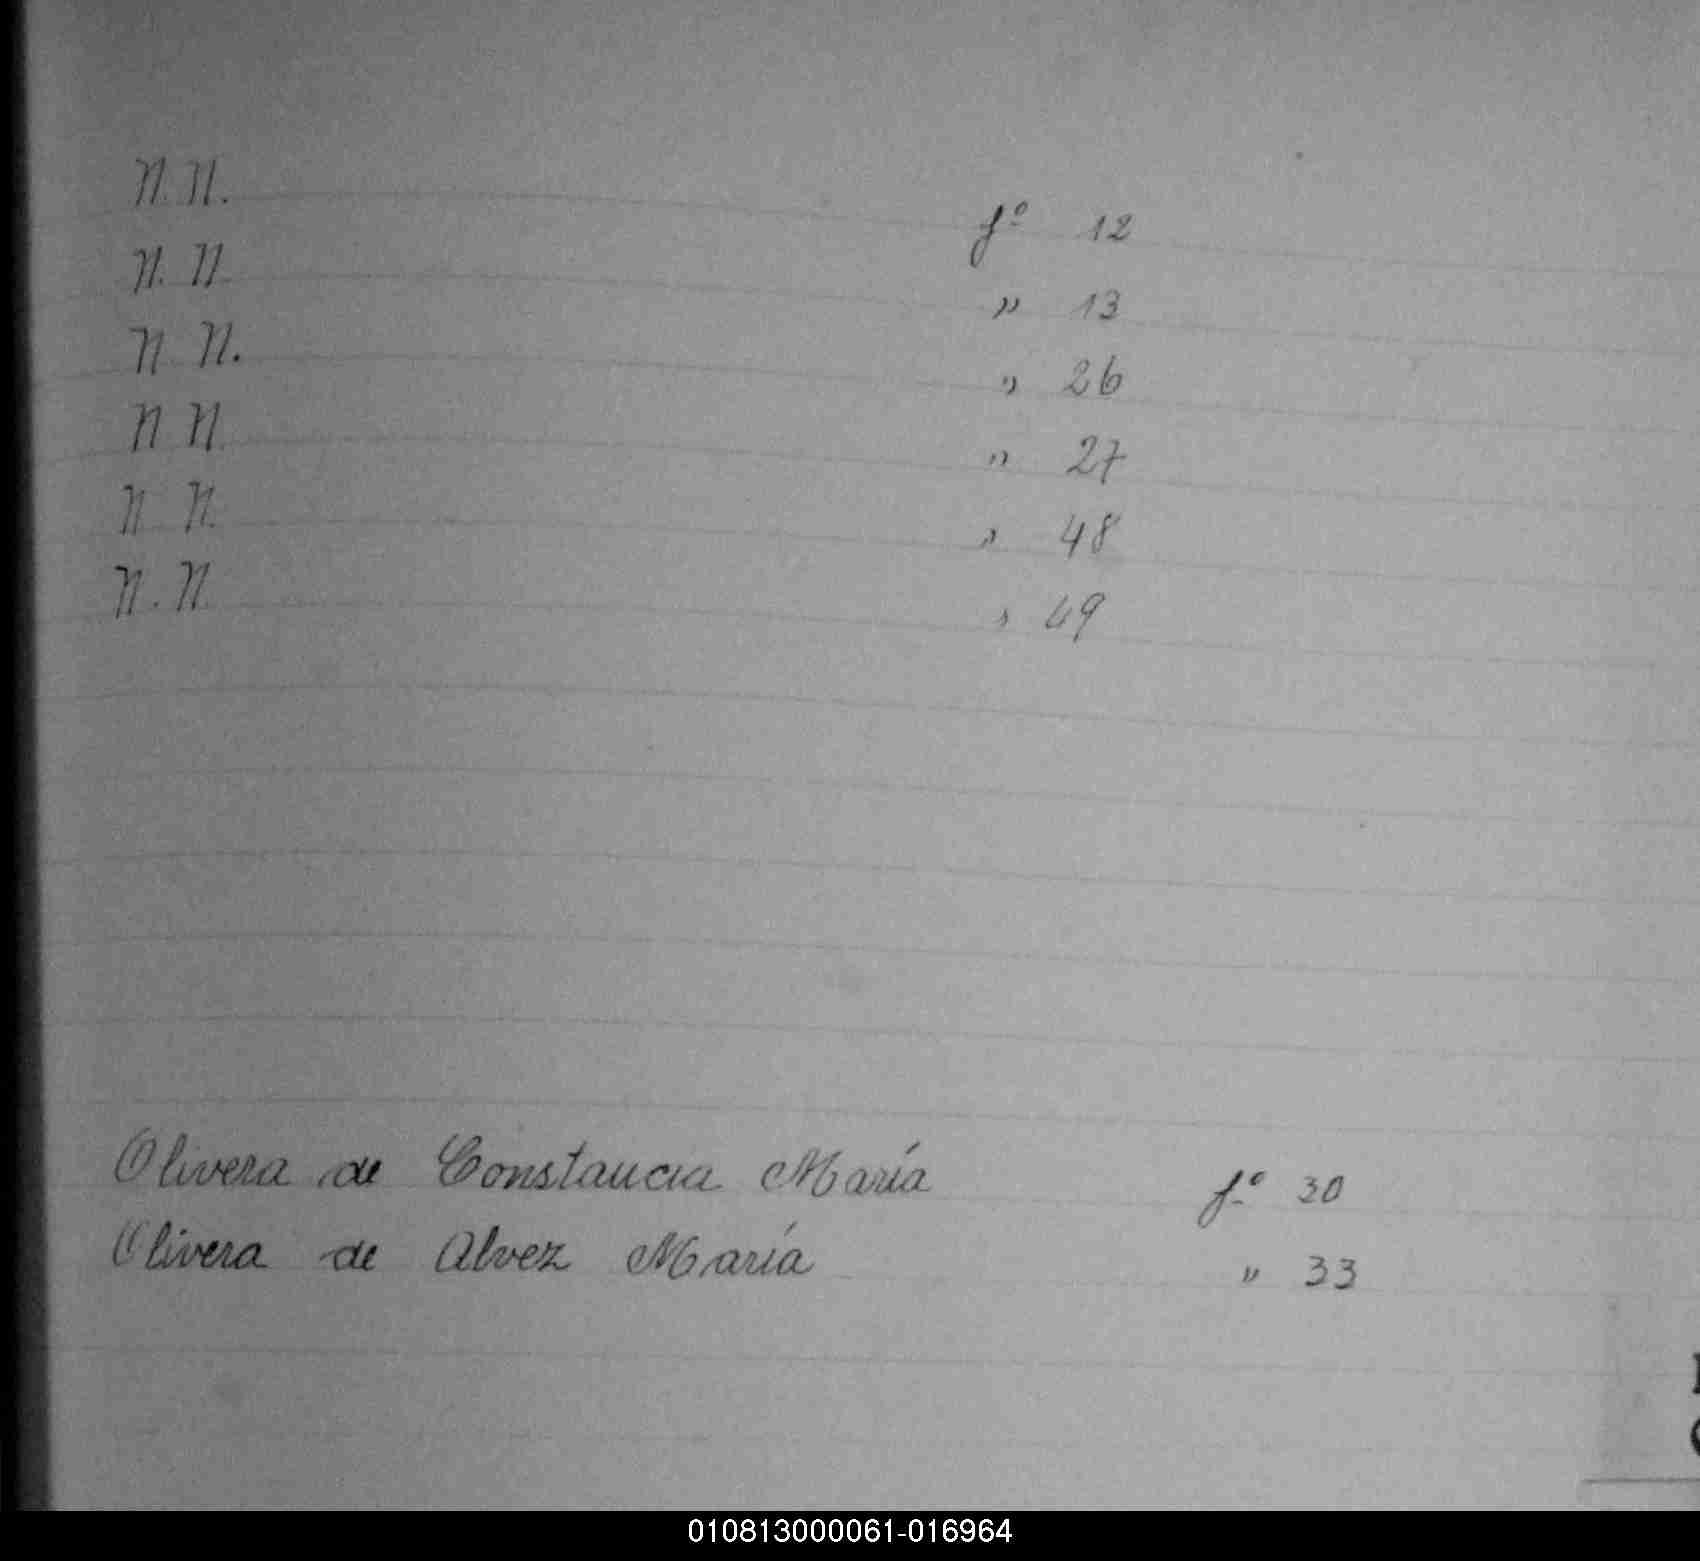 N. N. fº 12
N. N. " 13
N N. " 26
N N. " 27
N N. " 48
N. N. " 49
Olivera de Constancia María fº 30
Olivera de Alvez María " 33
010813000061-016964